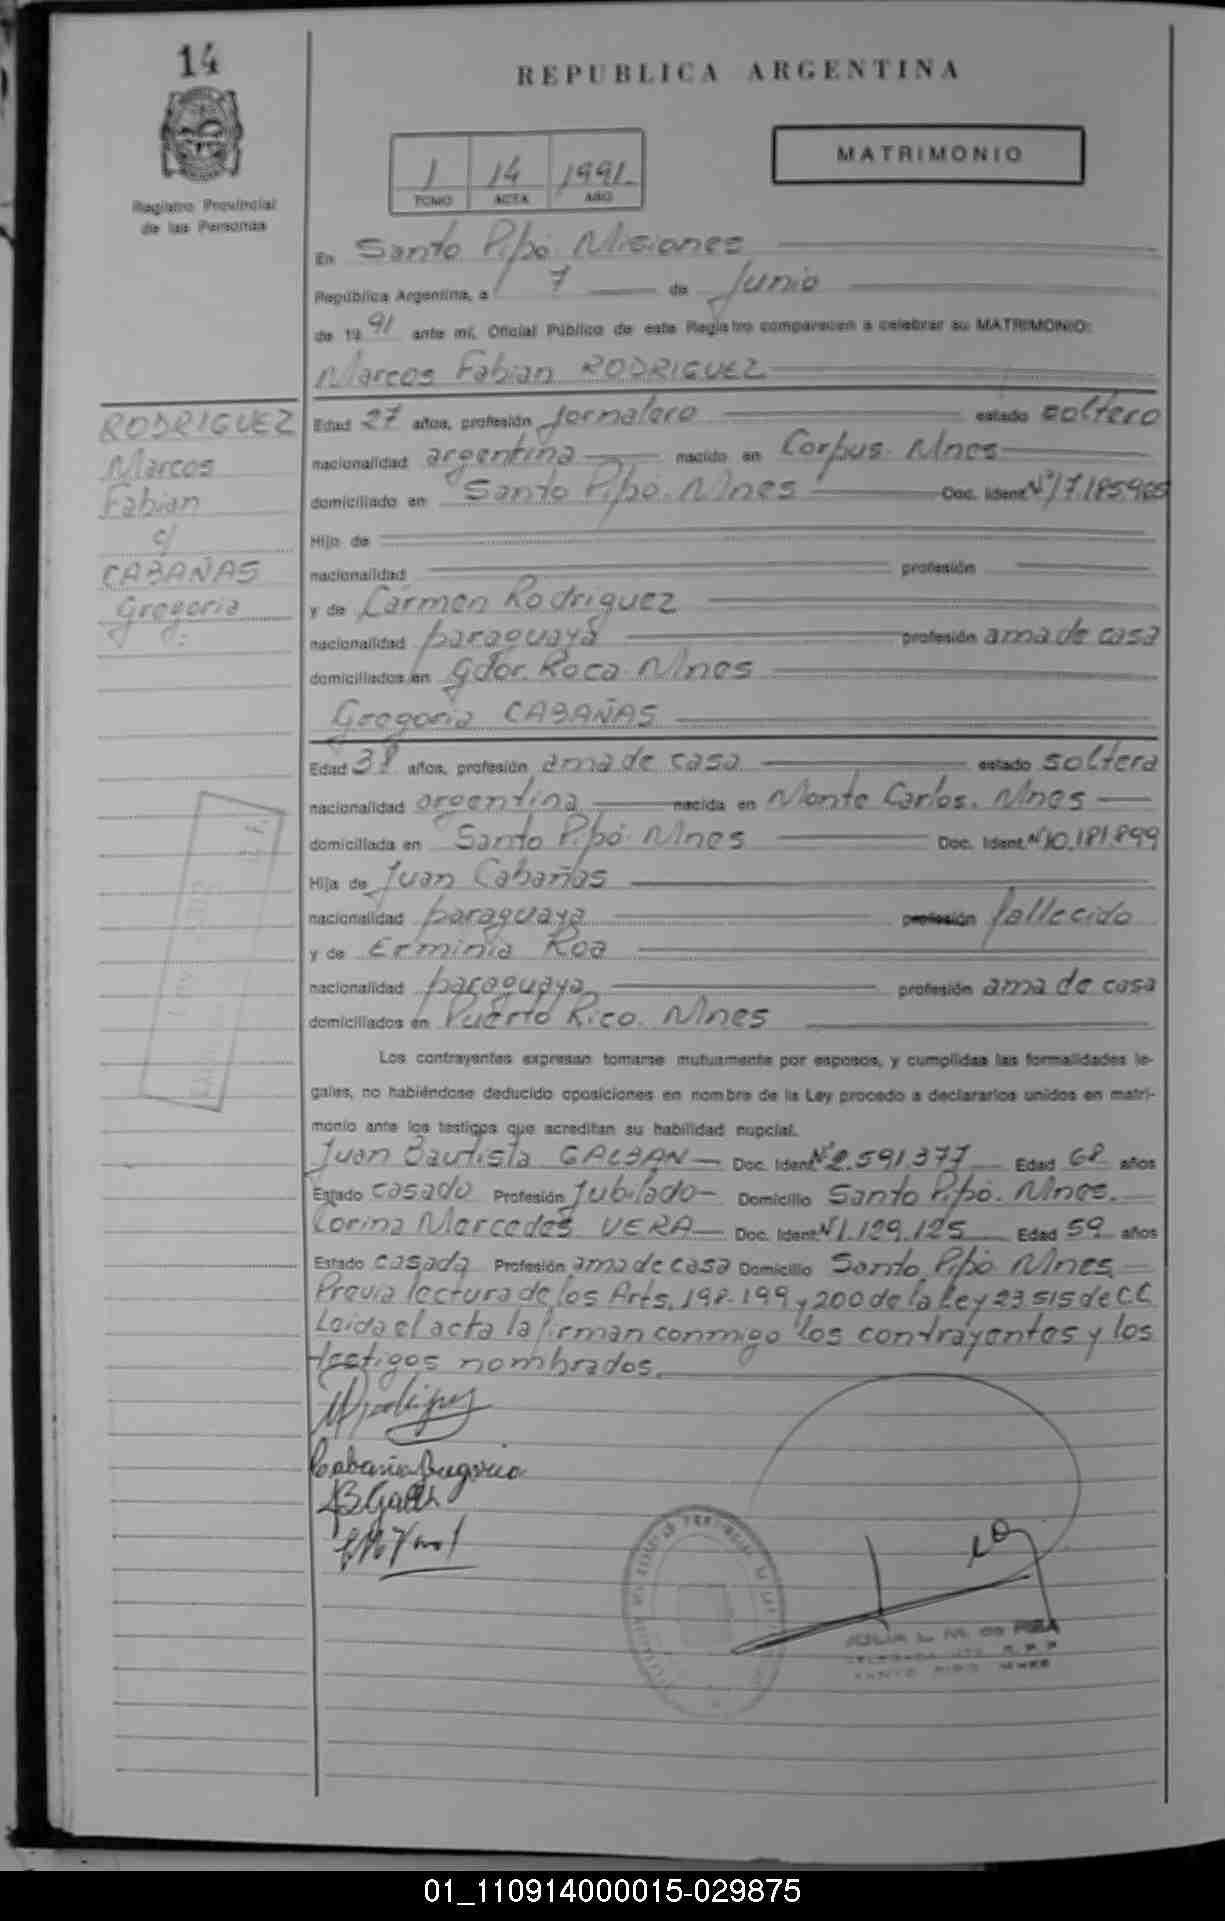 14
REPUBLICA ARGENTINA
MATRIMONIO
1 14 1991.
TOMO ACTA AÑO
Registro Provincial
de las Personas
En Santo Pipó. Misiones
República Argentina, a 7 de Junio
de 1991 ante mi, Oficial Público de este Registro comparecen a celebrar su MATRIMONIO:
Marcos Fabian RODRIGUEZ
RODRIGUEZ
Marcos
Fabian
c/
CABAÑAS
Gregoria
Edad 27 años, profesión Jornalero estado soltero
nacionalidad argentina nacido en Corpus. Mnes
domiciliado en Santo Pipó. Mnes Doc. Ident. Nº 17.185.965
Hijo de
nacionalidad profesión
y de Carmen Rodriguez
nacionalidad paraguaya profesión ama de casa
domiciliados en Gdor. Roca. Mnes
Gregoria CABAÑAS
Edad 38 años, profesión ama de casa estado soltera
nacionalidad argentina nacida en Monte Carlos. Mnes
domiciliada en Santo Pipó. Mnes Doc. Ident. Nº 10.181.899
Hija de Juan Cabañas
nacionalidad paraguaya profesión fallecido
y de Erminia Roa
nacionalidad paraguaya profesión ama de casa
domiciliados en Puerto Rico. Mnes
Los contrayentes expresan tomarse mutuamente por esposos, y cumplidas las formalidades le-
gales, no habiéndose deducido oposiciones en nombre de la Ley procedo a declararlos unidos en matri-
monio ante los testigos que acreditan su habilidad nupcial.
Juan Bautista GALBAN Doc. Ident. Nº 2.591.377 Edad 68 años
Estado casado Profesión Jubilado Domicilio Santo Pipó. Mnes.
Corina Mercedes VERA Doc. Ident. Nº 1.129.125 Edad 59 años
Estado casada Profesión ama de casa Domicilio Santo Pipó Mnes.
Previa lectura de los Arts. 198-199 y 200 de la Ley 23.515 de C.C.
Leida el acta la firman conmigo los contrayentes y los
testigos nombrados.
Cabaña Gregoria
JULIA L. M. de
SANTO PIPO MNES
01_110914000015-029875